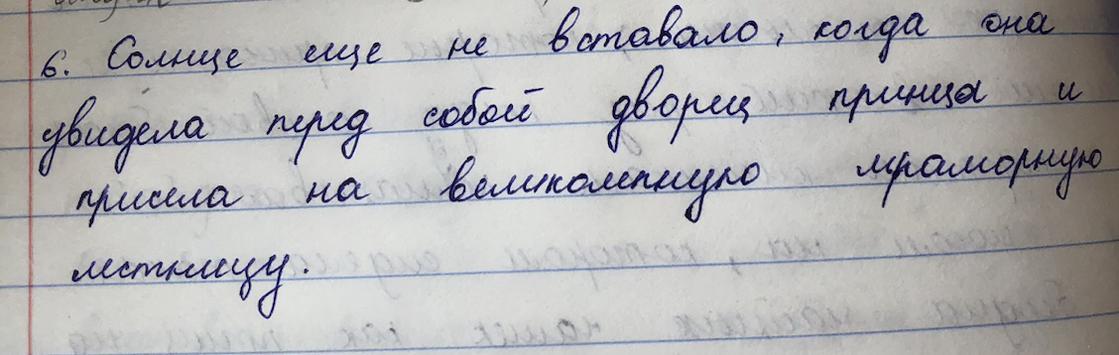 6. Солнце еще не вставало, когда она
увидела перед собой дворец принца и
присела на великолепную мраморную
лестницу.